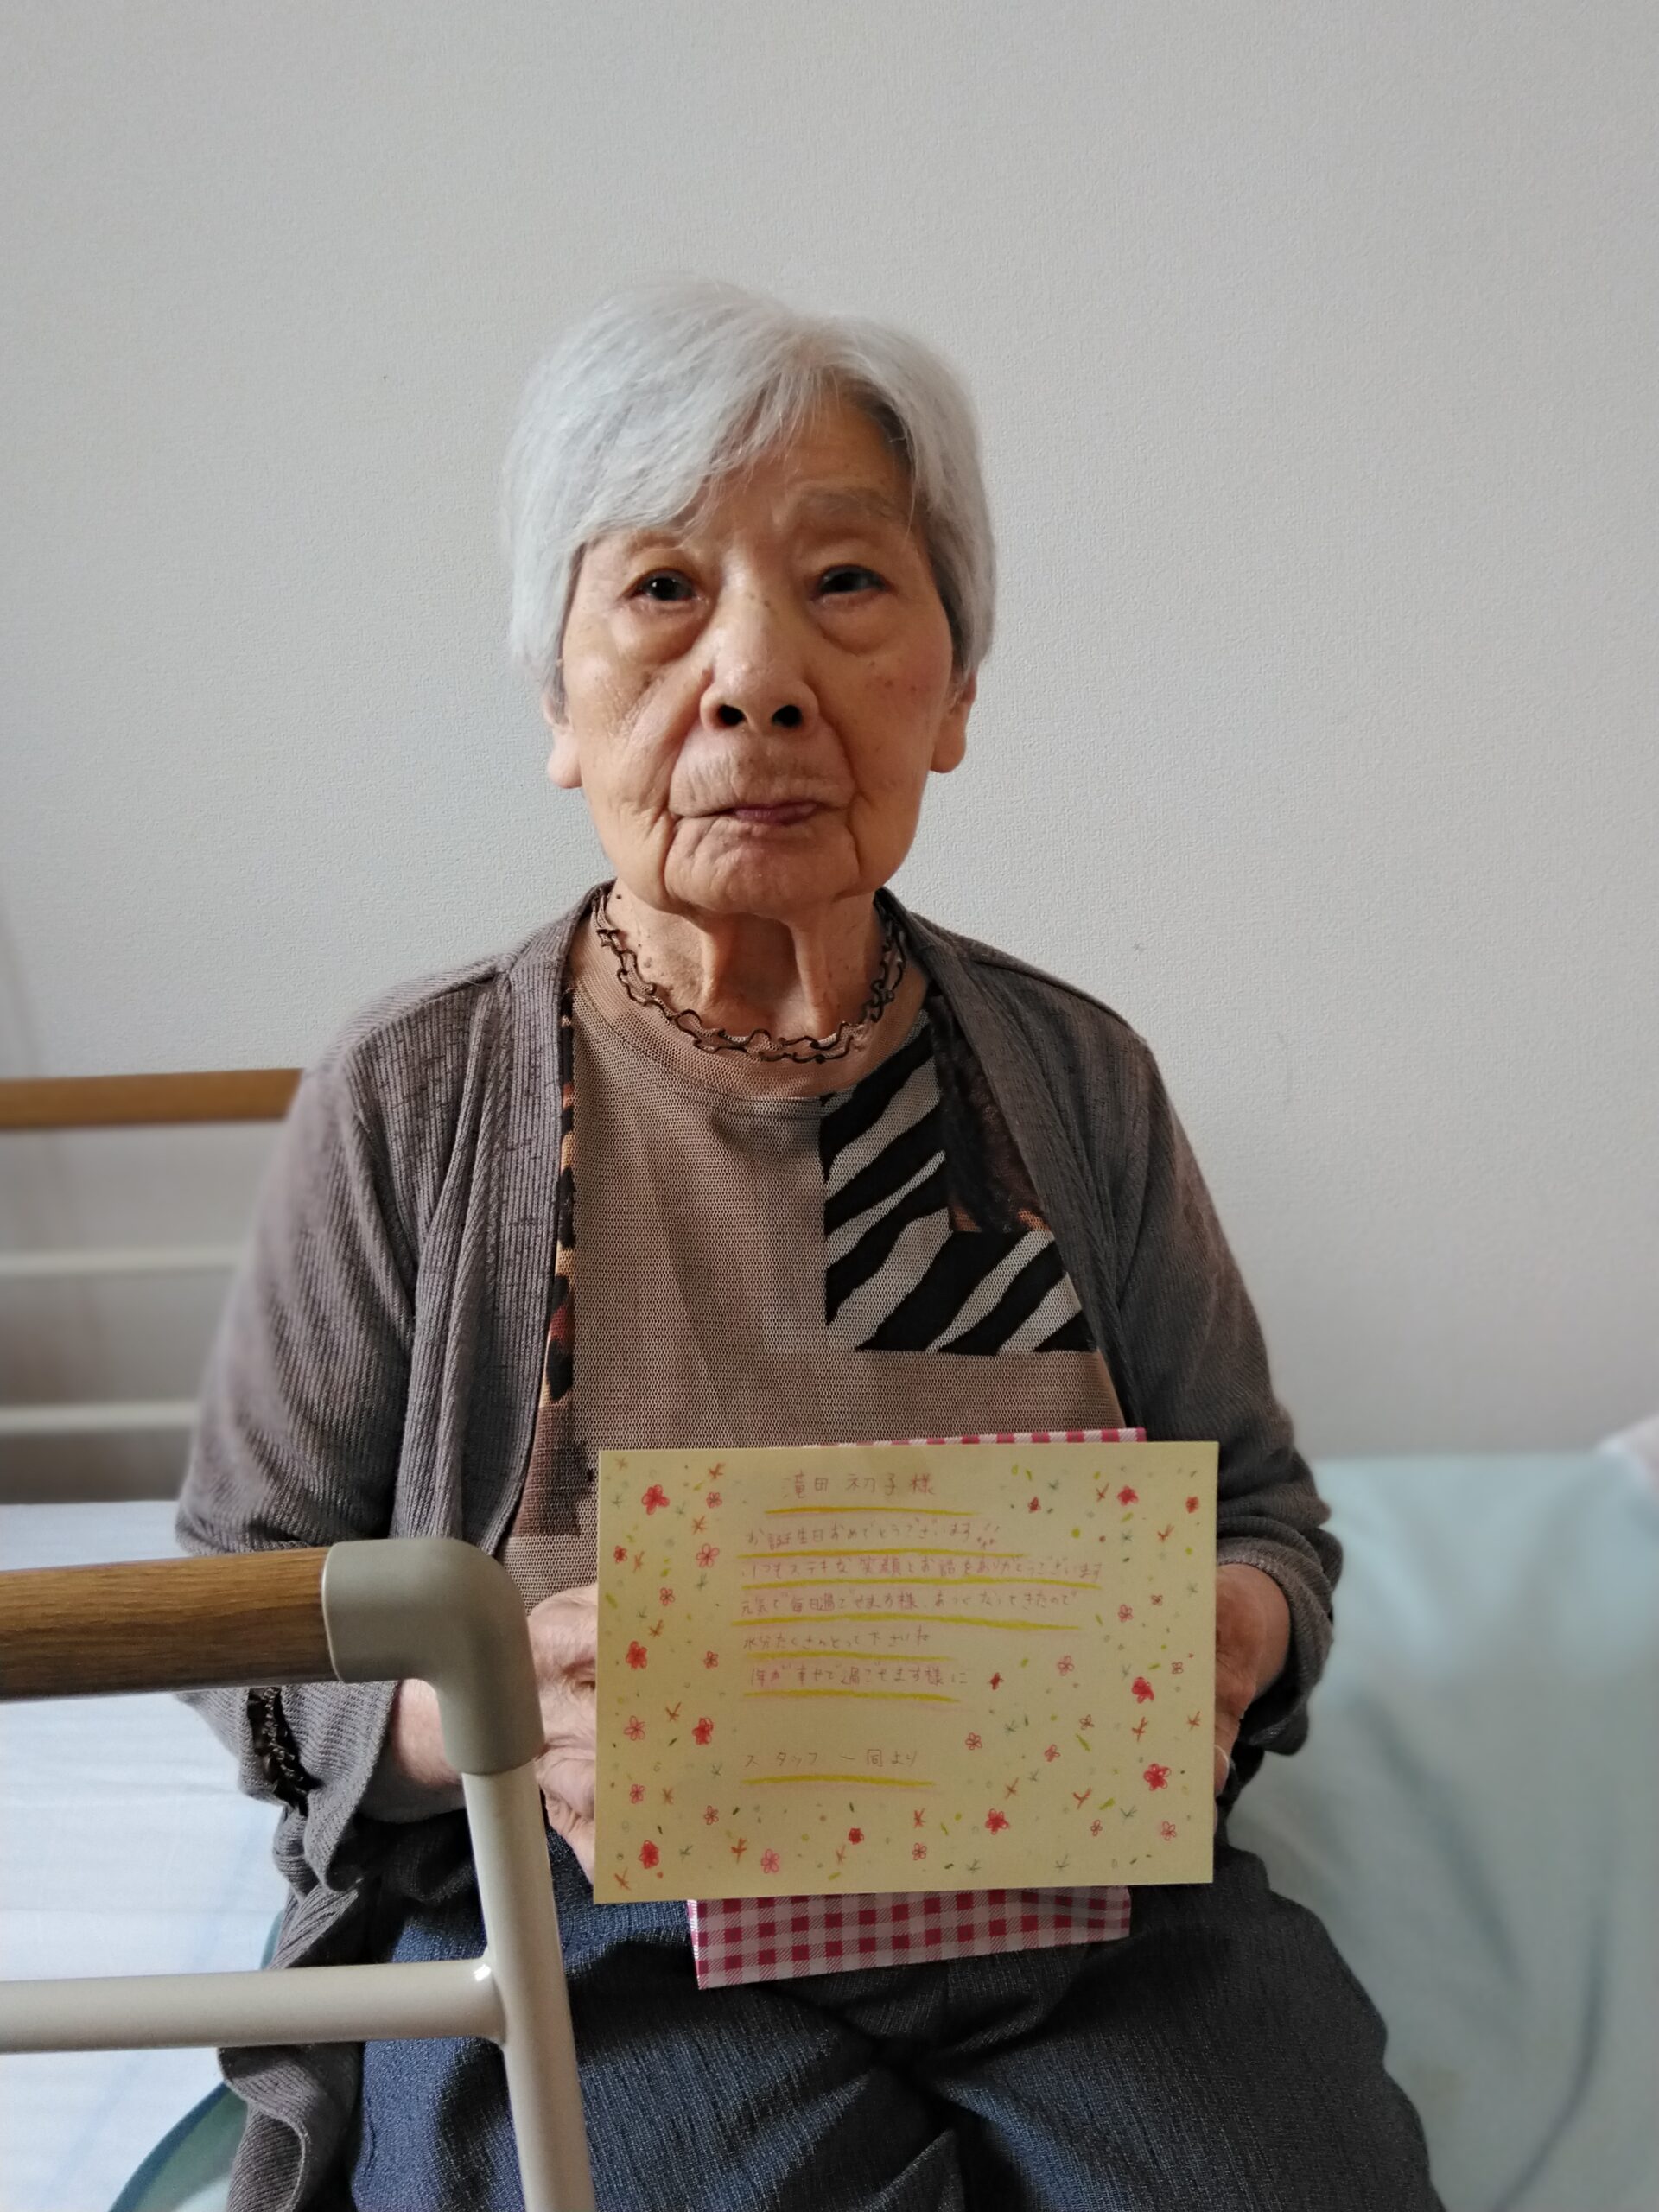 滝田 初子様
お誕生日おめでとうございます!!
いつもステキな笑顔とお話をありがとうございます
元気で毎日過ごせます様、あつくなってきたので
水分たくさんとって下さいね
1年が幸せで過ごせます様に
スタッフ一同より